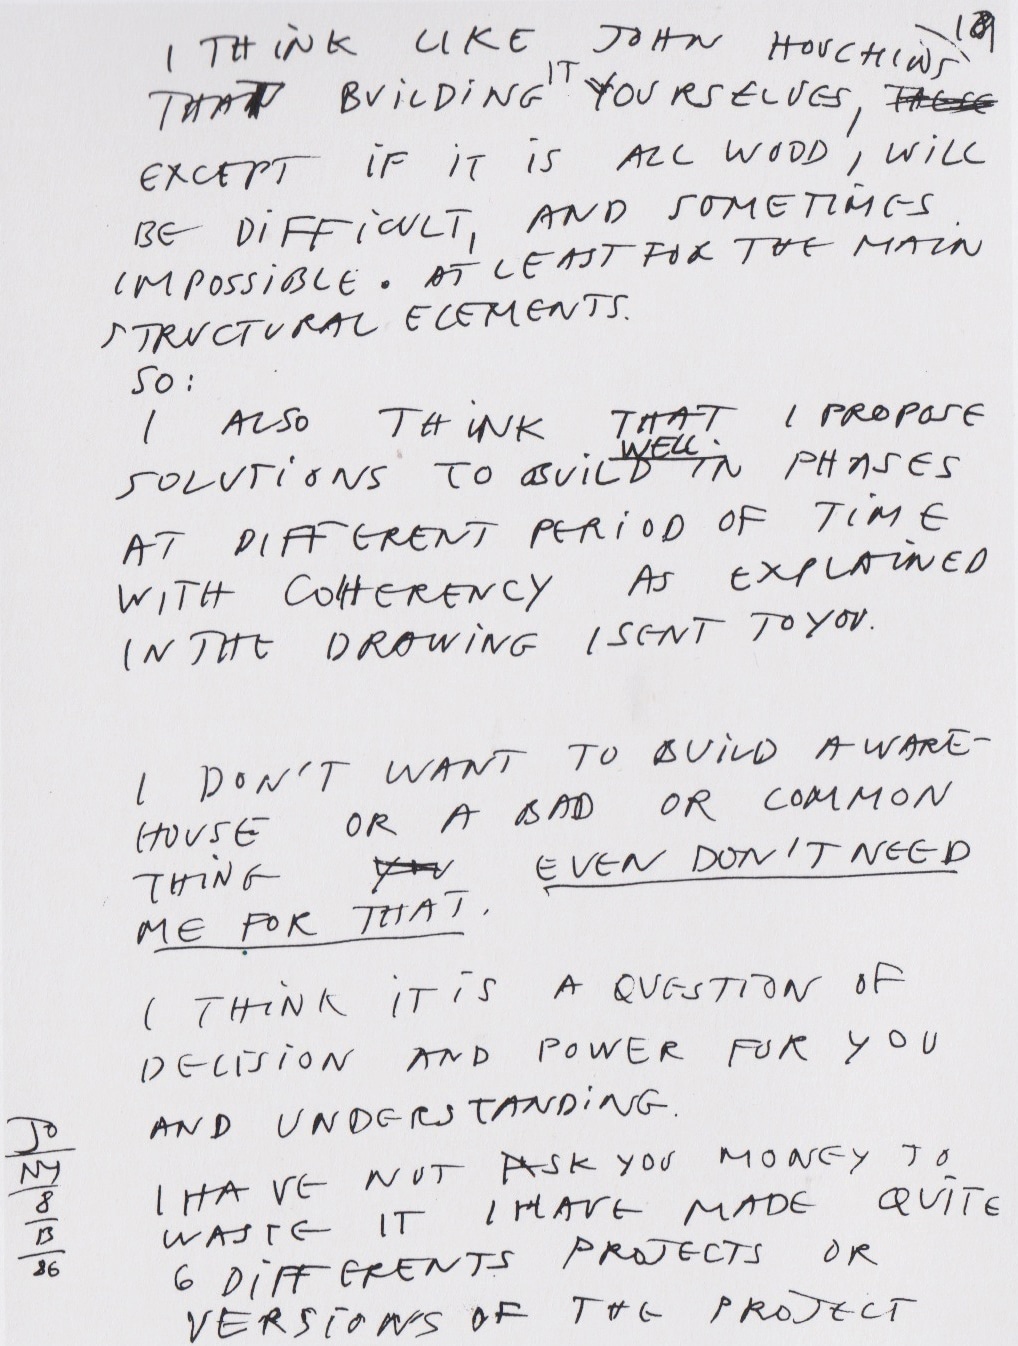 189
I THINK LIKE JOHN HOUCHINS
THAT BUILDING IT YOURSELVES,
EXCEPT IF IT IS ALL WOOD, WILL
BE DIFFICULT, AND SOMETIMES
IMPOSSIBLE. AT LEAST FOR THE MAIN
STRUCTURAL ELEMENTS.
SO:
I ALSO THINK THAT I PROPOSE
WELL.
SOLUTIONS TO BUILD IN PHASES
AT DIFFERENT PERIOD OF TIME
WITH COHERENCY AS EXPLAINED
IN THE DRAWING I SENT TO YOU.
I DON'T WANT TO BUILD A WARE-
HOUSE OR A BAD OR COMMON
THING YOU EVEN DON'T NEED
ME FOR THAT.
I THINK IT IS A QUESTION OF
DECISION AND POWER FOR YOU
AND UNDERSTANDING.
I HAVE NOT ASK YOU MONEY TO
WASTE IT I HAVE MADE QUITE
6 DIFFERENTS PROJECTS OR
VERSIONS OF THE PROJECT
JO
NY
8
B
86